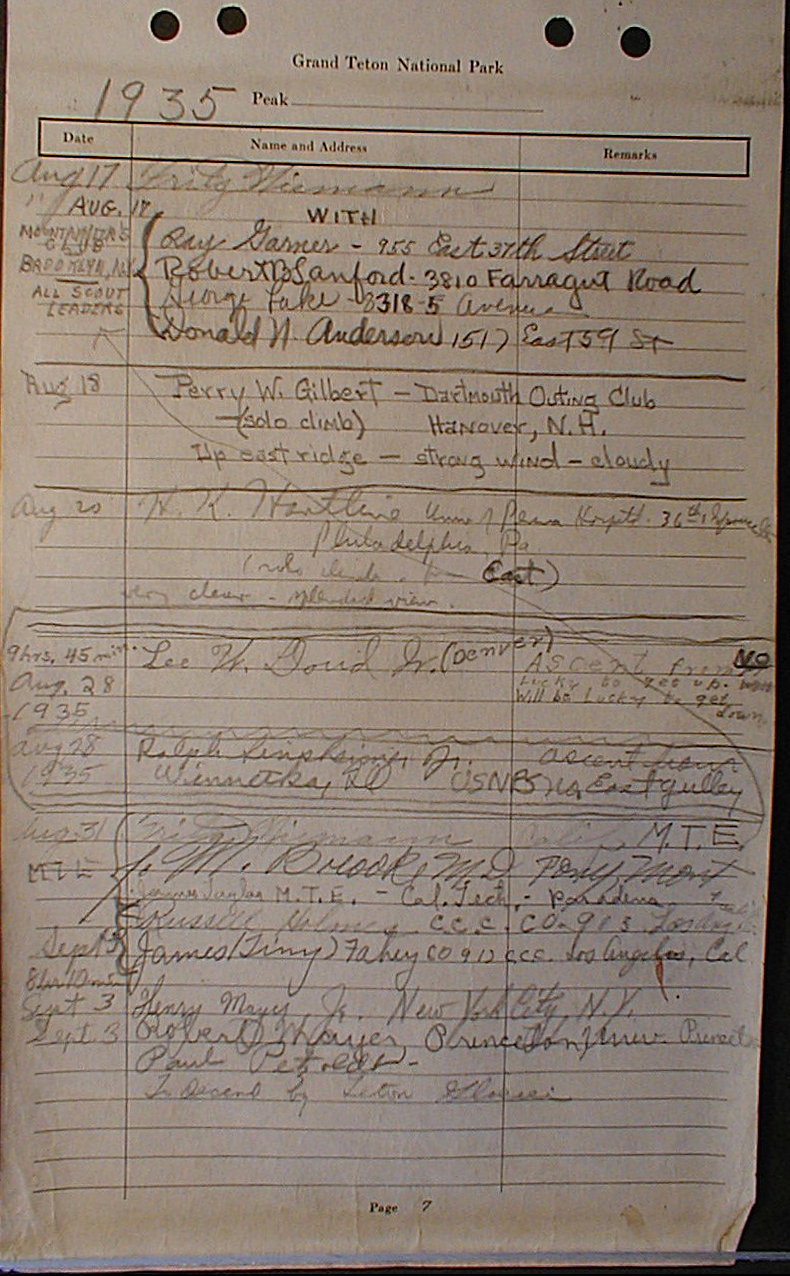 Grand Teton National Park
1935 Peak
Date Name and Address Remarks
Aug 17 Fritz Wiemann
" AUG. 17 WITH
MOUNTAINEERS CLUB Ray Garner - 955 East 37th Street
BROOKLYN, N.Y. Robert B Sanford - 3810 Farragut Road
ALL SCOUT George - 3318-5 Avenue
LEADERS Donald N. Anderson 1517 East 59 St
Aug 18 Perry W. Gilbert - Dartmouth Outing Club
(solo climb) Hanover, N.H.
Up east ridge - strong wind - cloudy
Aug 20 H. K. Hartline Univ of Penn Hospital. 36th & Spruce
Philadelphia, Pa
(solo climb East)
very clear - splendid view.
9 hrs. 45 min. Lee W. Doud Jr. (Denver) Ascent from NO
Aug. 28 Lucky to get up.
1935 Will be lucky to get down
Aug 28 Ralph Jr. ascent from
1935 Winnetka, Ill USNPS East gulley
Aug. 31 Fritz Wiemann Calif. M.T.E.
MTE J. M. Brooke, M.D. Pony, Mont
James M.T.E. - Cal. Tech. - Pasadena
Russell Holmes, C.C.C. Co. 903 Los Angeles
Sept 3 James (Tiny) Fahey CO 912 CCC. Los Angeles, Cal
8 hr 10 min
Sept 3 Henry Jr. New York City, N.Y.
Sept. 3 Robert Princeton Univ. Princeton
Paul Petzoldt -
To descend by Teton Glacier
Page 7